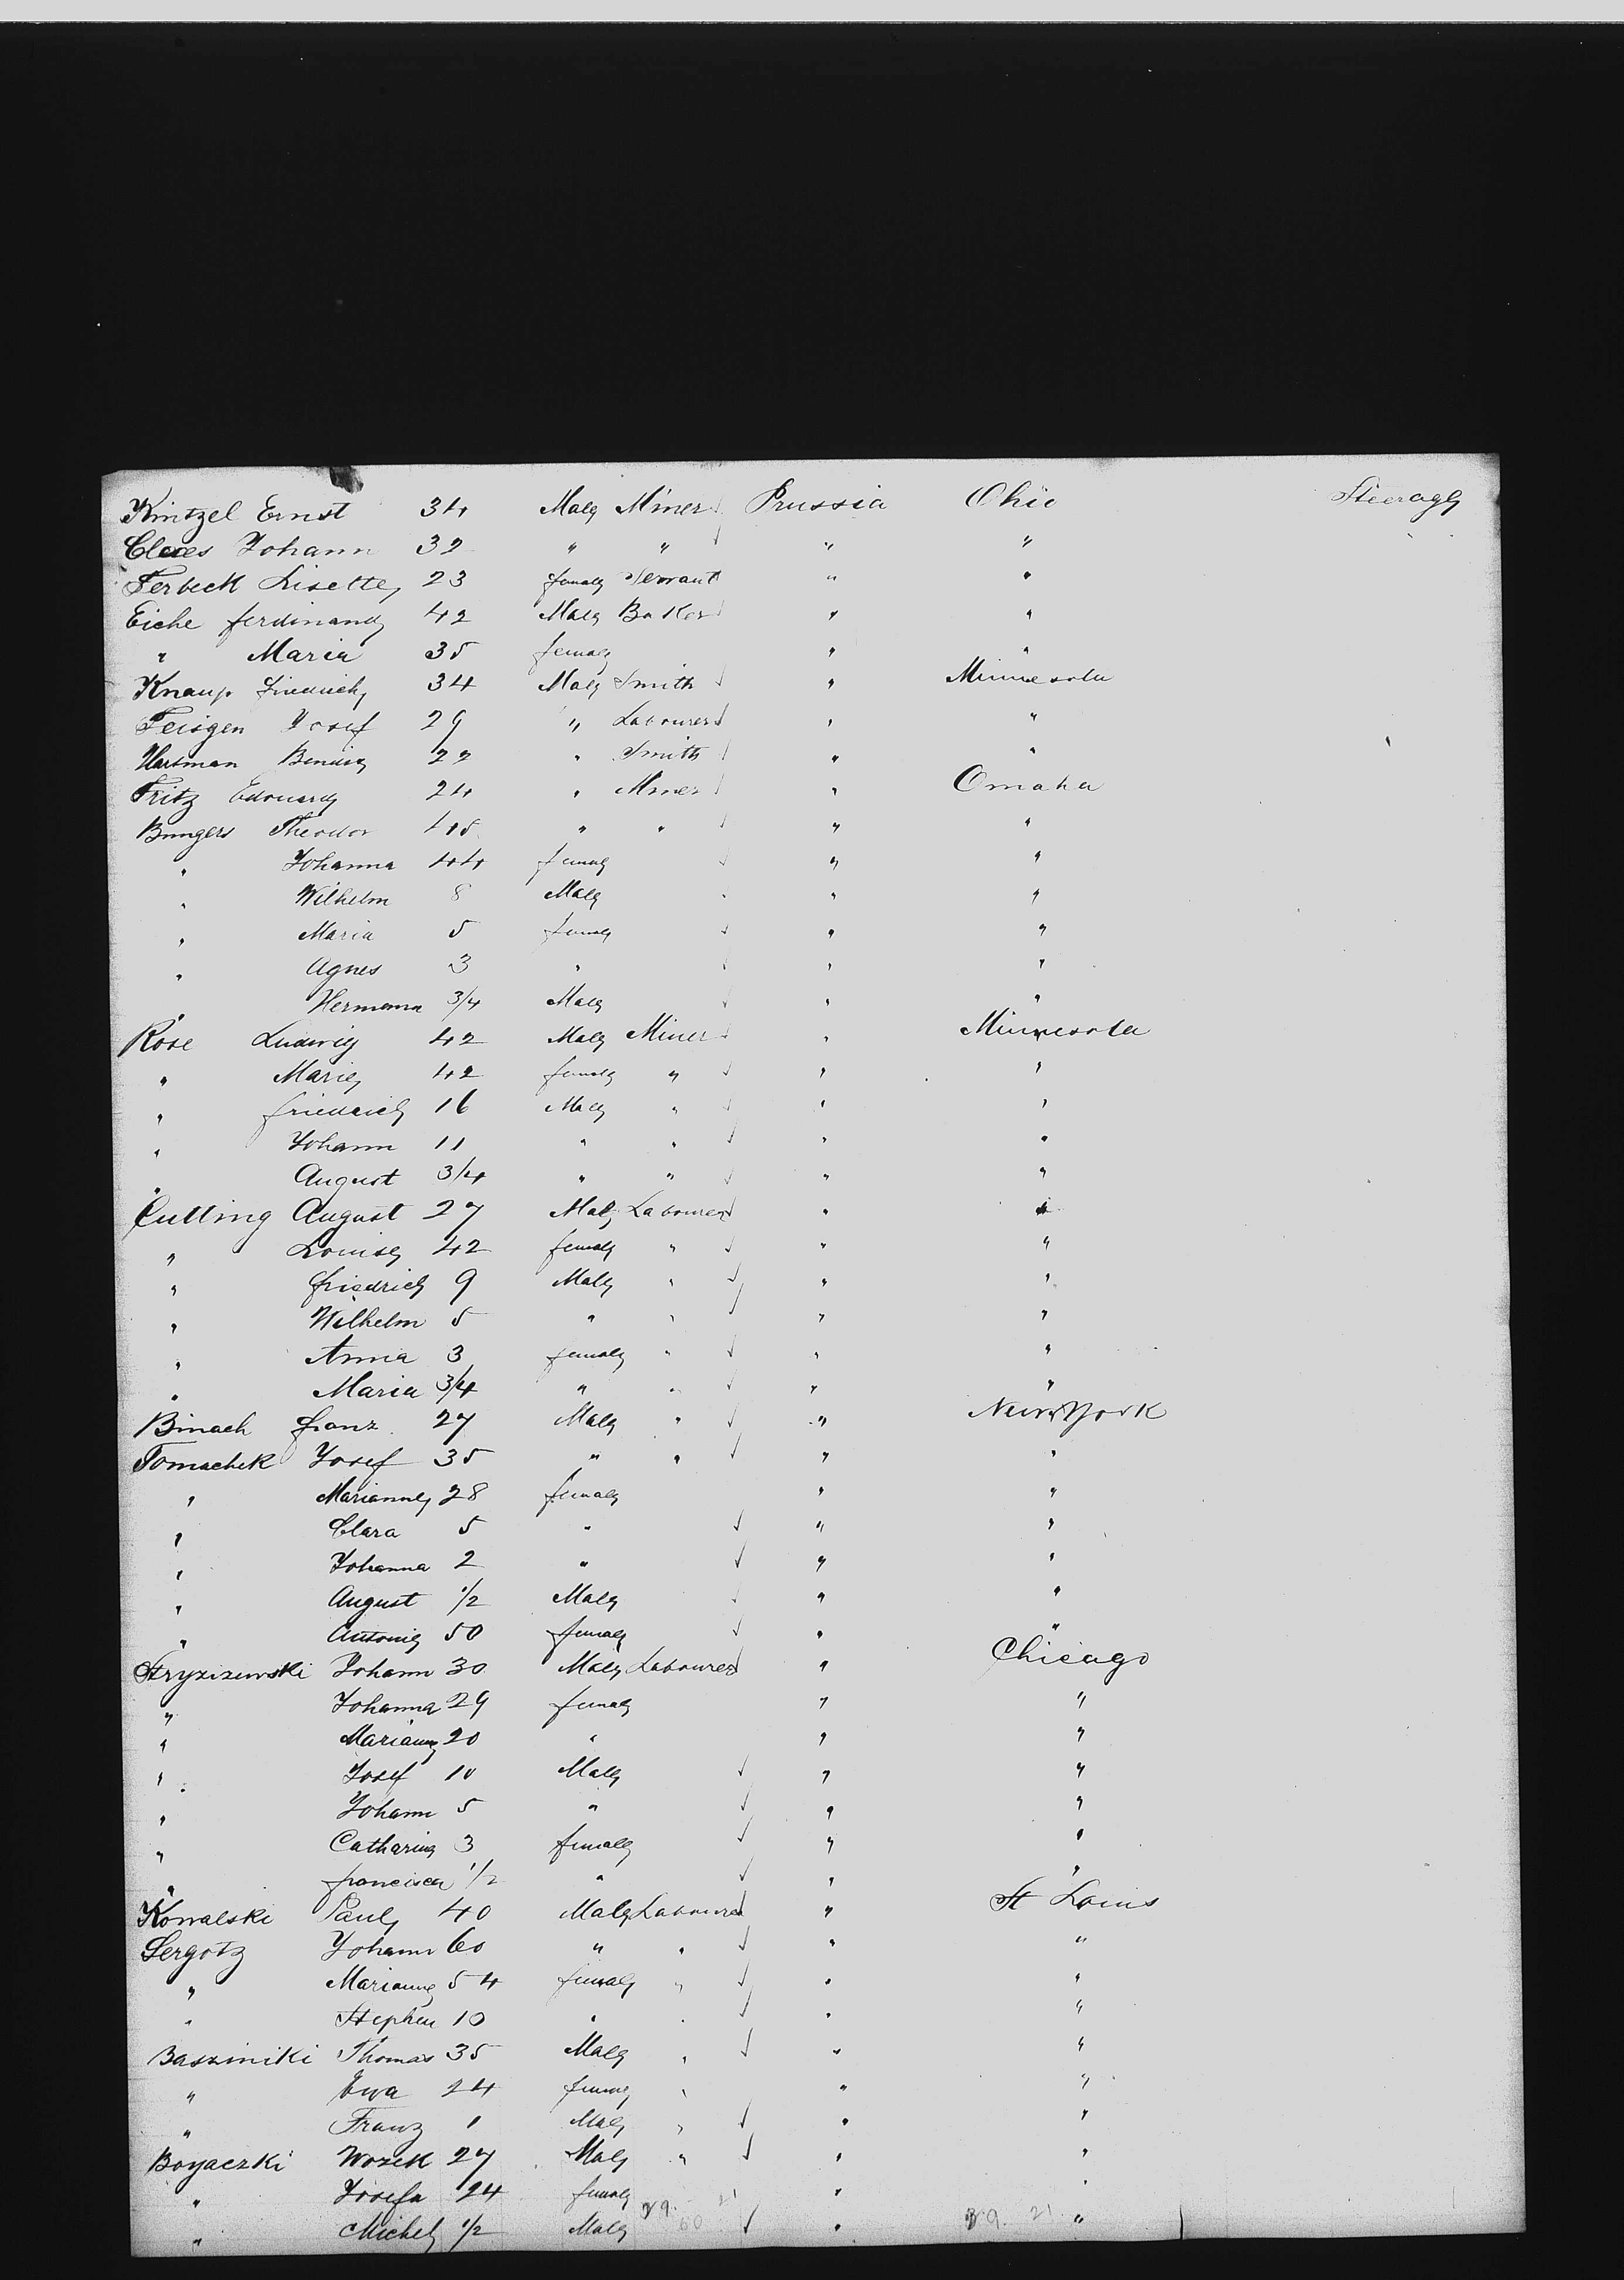 Kintzel Ernst 34 Male Miner Prussia Ohio Steerage
Claes Johann 32 " " " "
Terbeck Lisette 23 female Servant " "
Eiche ferdinand 42 Male Baker " "
" Maria 35 female " "
Knaup Friedrich 34 Male Smith " Minnesota
Feisgen Josef 29 " Labourer " "
Hartman 22 " Smith " "
Fritz Edouard 24 " Miner " Omaha
Bungers Theodor 45 " " " "
" Johanna 44 female " "
" Wilhelm 8 Male " "
" Maria 5 female " "
" Agnes 3 " " "
" Hermann 3/4 Male " "
Rose Ludwig 42 Male Miner " Minnesota
" Marie 42 female " " "
" friedrich 16 Male " " "
" Johann 11 " " " "
" August 3/4 " " " "
Cutting August 27 Male Labourer " "
" Louise 42 female " " "
" friedrich 9 Male " " "
" Wilhelm 5 " " " "
" Anna 3 female " " "
" Maria 3/4 " " " "
Binach franz 27 Male " " New York
Tomachek Josef 35 " " " "
" Marianne 28 female " "
" Clara 5 " " "
" Johanna 2 " " "
" August 1/2 Male " "
" Antonie 50 female " "
Stryzizewski Johann 30 Male Labourer " Chicago
" Johanna 29 female " "
" Marianne 20 " " "
" Josef 10 Male " "
" Johann 5 " " "
" Catharina 3 female " "
" francisca 1/2 " " "
Kowalski Paul 40 Male Labourer " St Louis
Sergotz Johann 60 " " " "
" Marianne 54 female " " "
" Stephen 10 " " " "
Basziniki Thomas 35 Male " " "
" Eva 24 female " " "
" Franz 1 Male " " "
Boyaczki Wozek 27 Male " " "
" Josefa 24 female " "
" Michel 1/2 Male " "